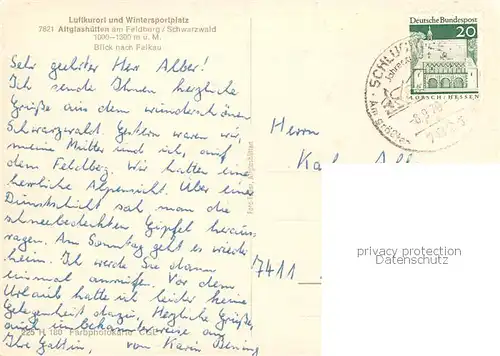 Luftkurort und Wintersportplatz
7821 Altglashütten am Feldberg / Schwarzwald
1000-1300 m ü. M.
Blick nach Falkau
Sehr geehrter Herr Alber!
Ich sende Ihnen herzliche
Grüße aus dem wunderschönen
Schwarzwald. Gestern waren wir,
meine Mutter und ich, auf
dem Feldberg. Wir hatten eine
herrliche Alpensicht. Über eine
Dunstschicht sah man die
schneebedeckten Gipfel heraus
ragen. Am Sonntag geht es wieder
heim. Ich werde Sie dann
einmal anrufen. Vor dem
Urlaub hatte ich leider keine
Gelegenheit dazu. Herzliche Grüße,
auch unbekannterweise an
Ihre Gattin, von Karin
225 H 180 Farbphotokarte
Deutsche Bundespost
20
LORSCH/HESSEN
SCHLUCHSEE
Herrn
Karl
7411
privacy protection
oldthing.com